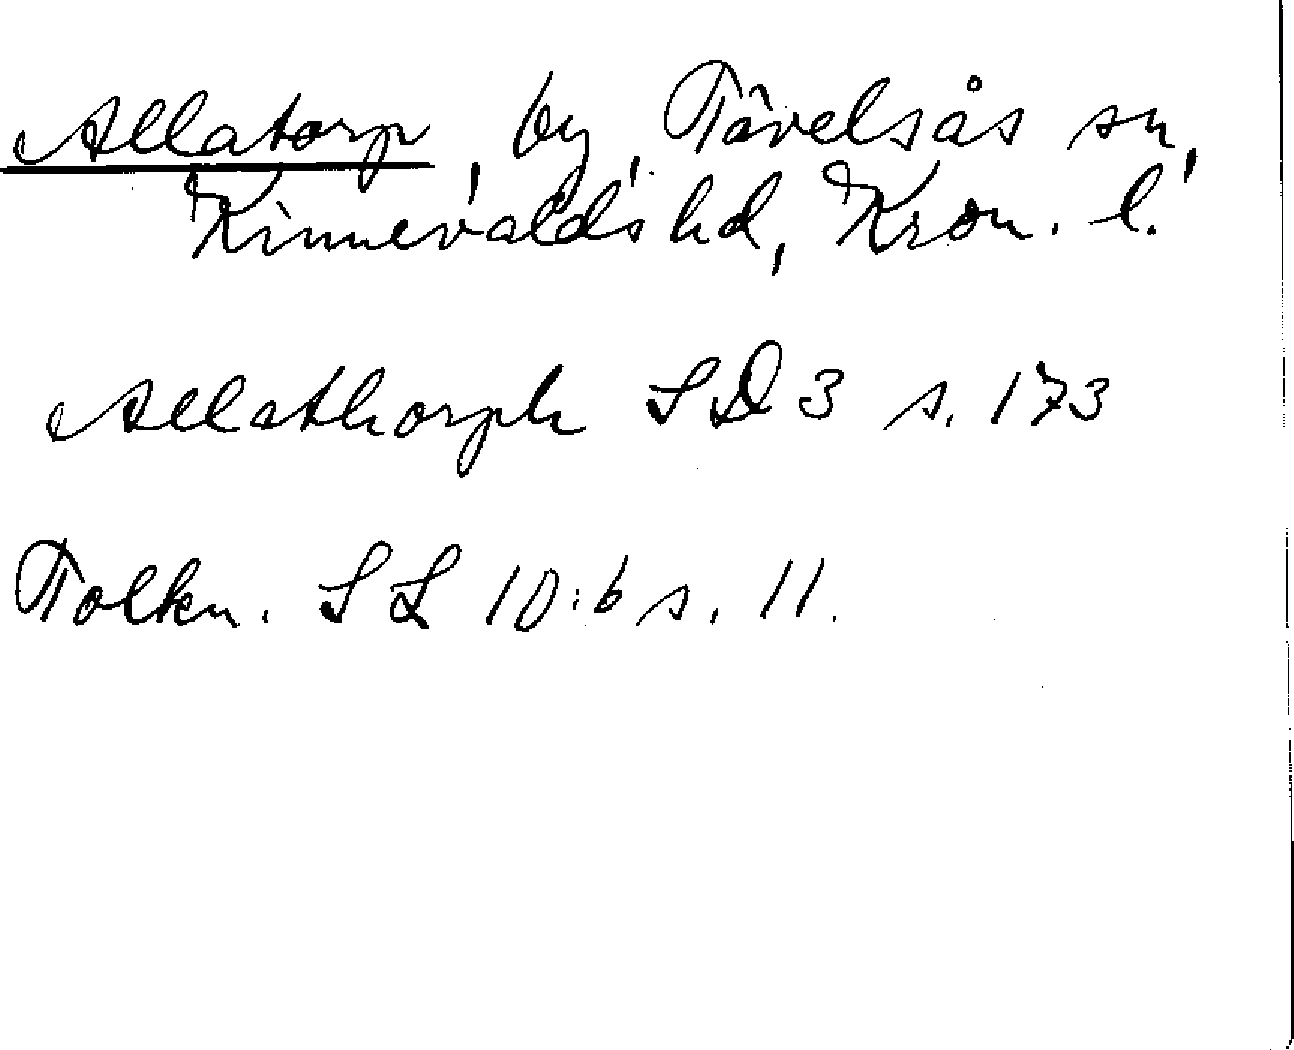 Allatorp, by, Tävelsås sn,
Kinnevalds hd, Kron. l.
Allathorph SD 3 s. 173
Tolkn. SL 10:6 s. 11.